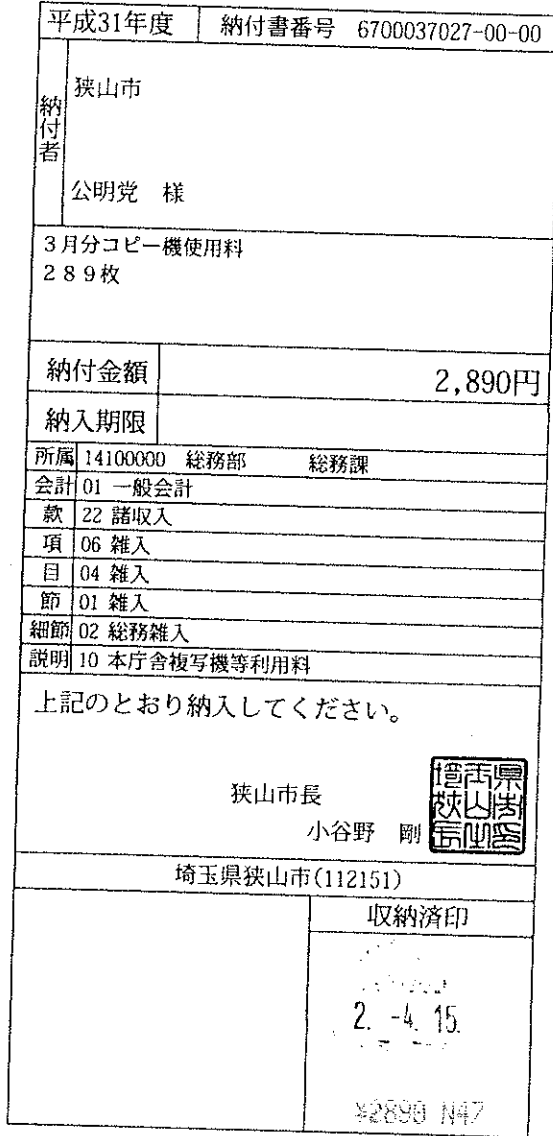 平成31年度 納付書番号 6700037027-00-00
納付者
狭山市
公明党 様
3月分コピー機使用料
289枚
納付金額 2,890円
納入期限
所属 14100000 総務部 総務課
会計 01 一般会計
款 22 諸収入
項 06 雑入
目 04 雑入
節 01 雑入
細節 02 総務雑入
説明 10 本庁舎複写機等利用料
上記のとおり納入してください。
狭山市長
小谷野 剛
埼玉県狭山市(112151)
収納済印
2. -4. 15.
¥2890 N47